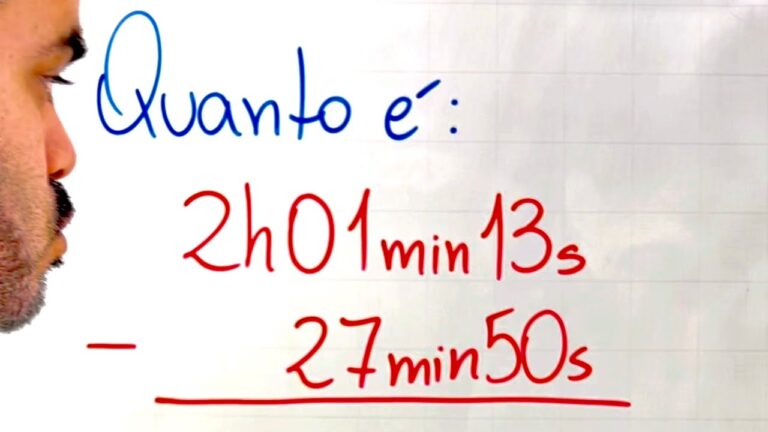 Quanto é:
2h01min13s
- 27min50s